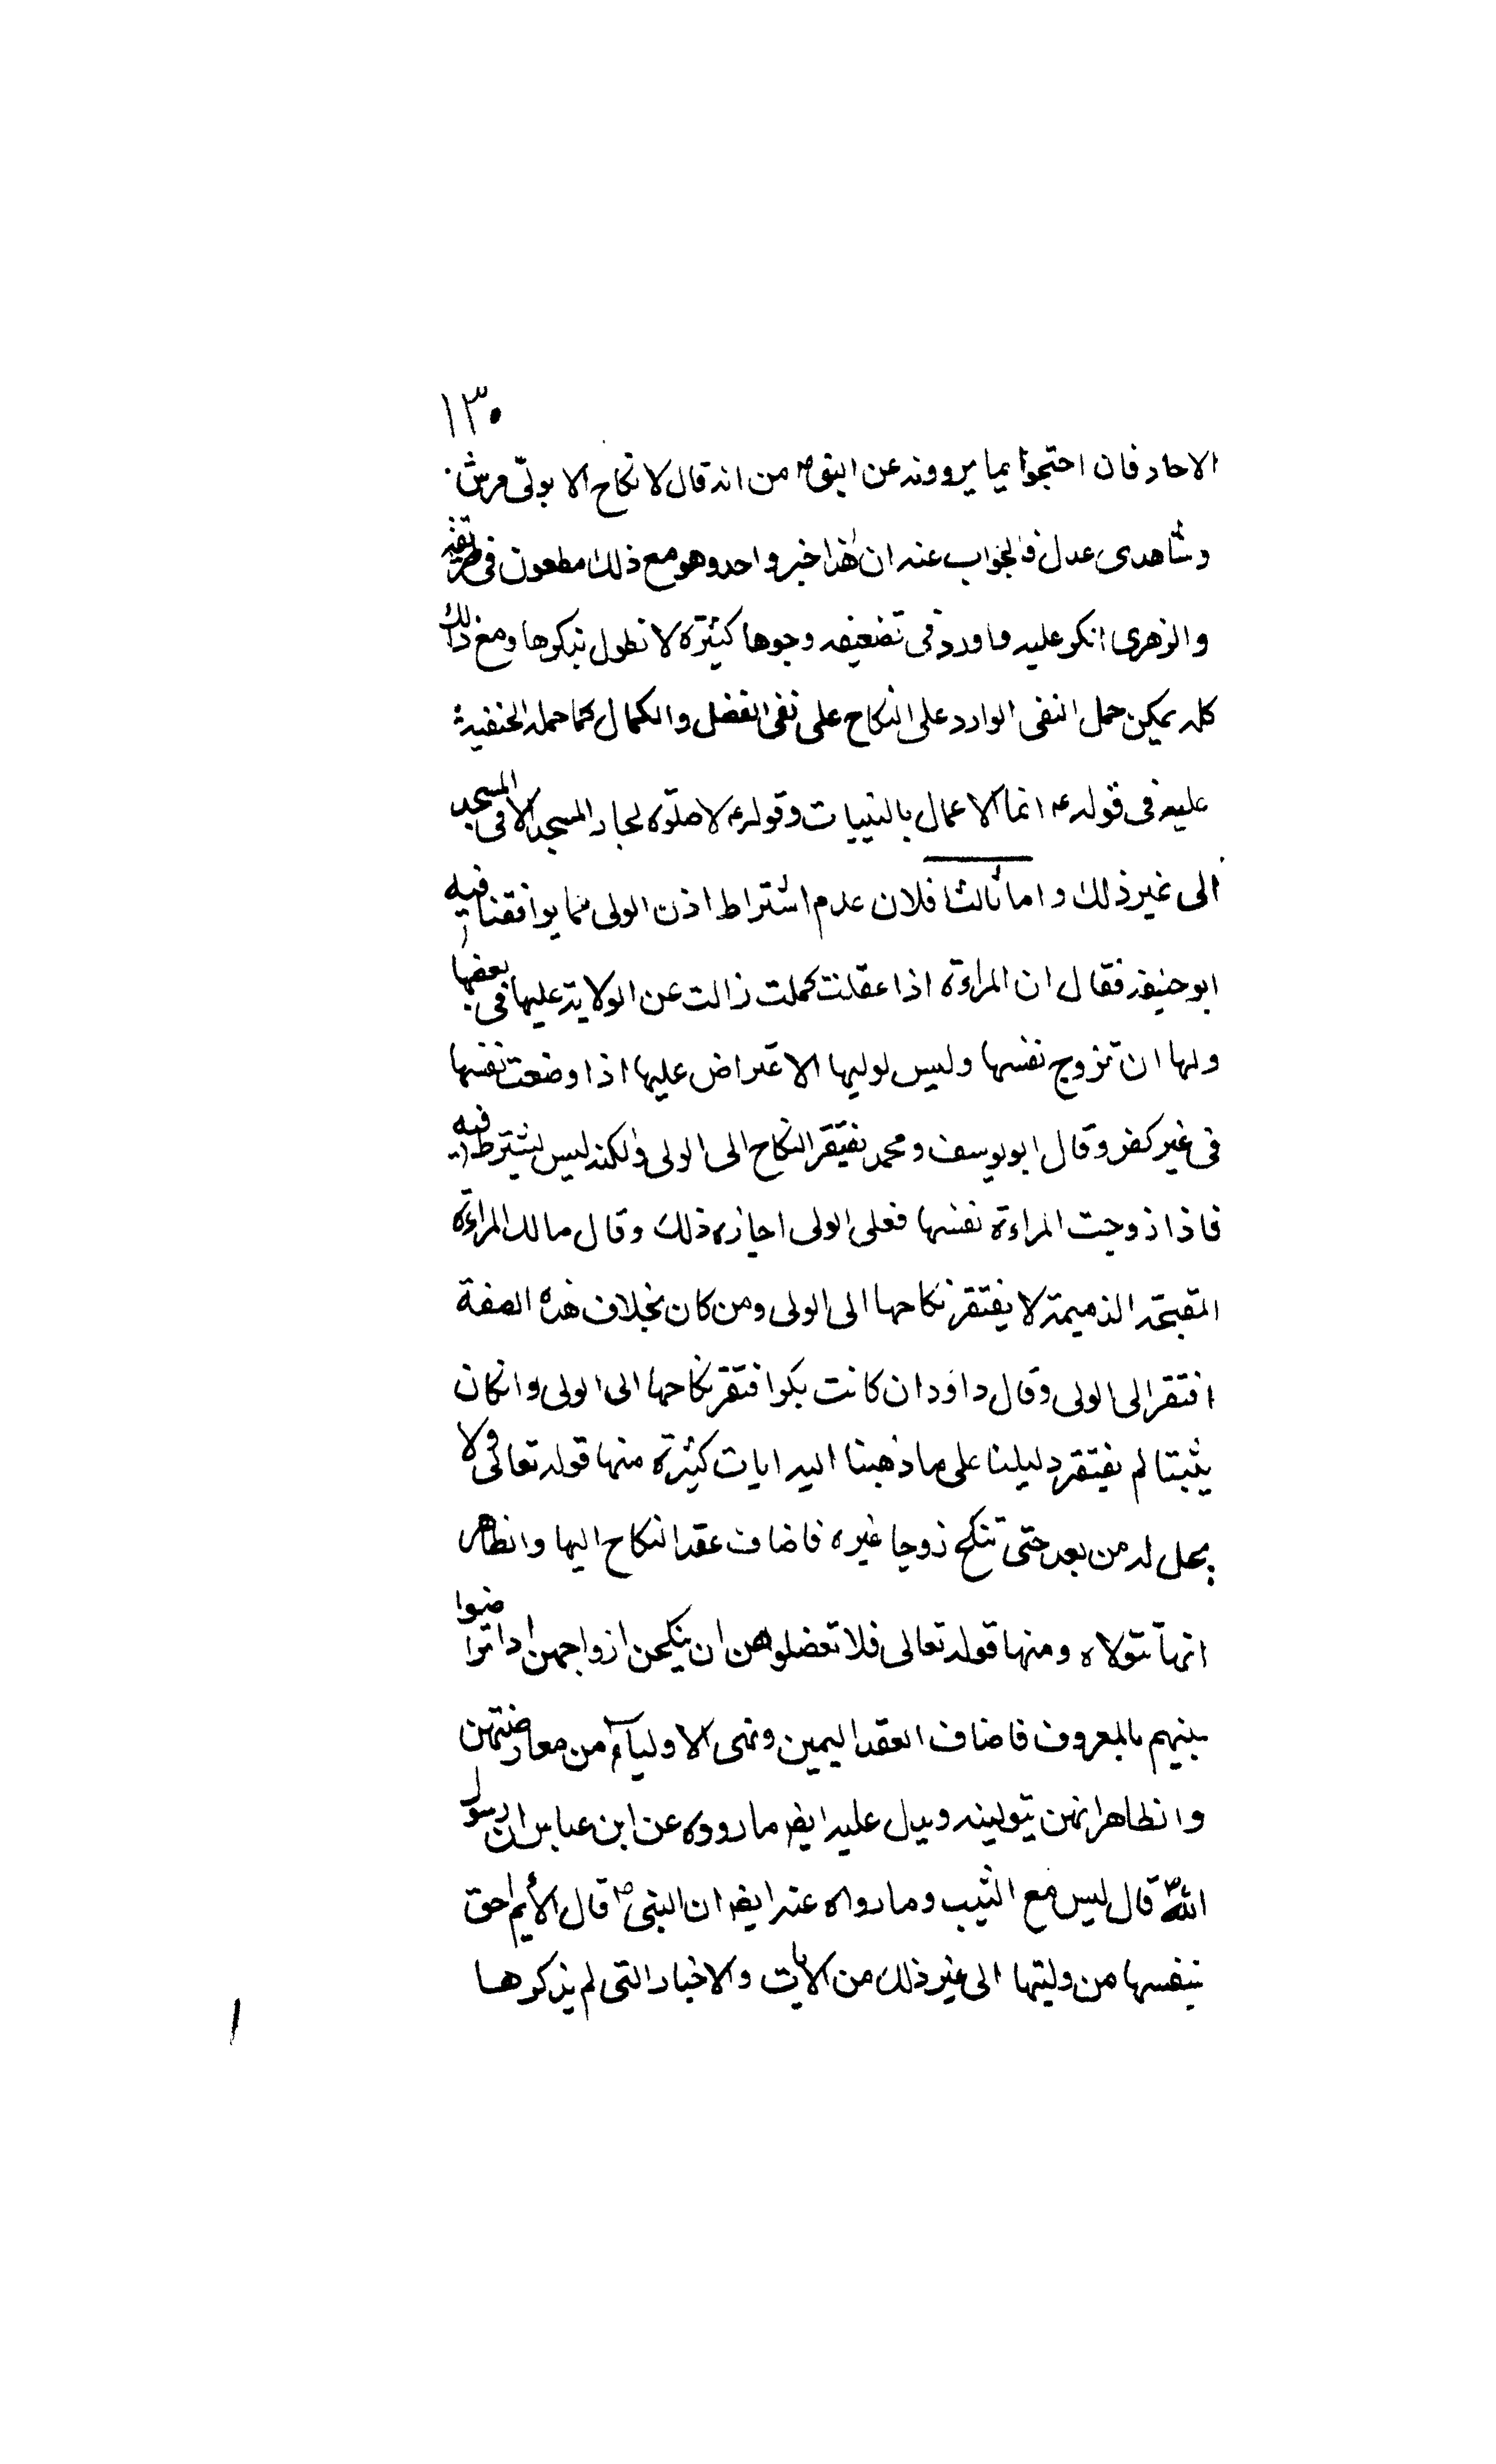 ١٣٠
الاحاد فان احتجوا بما يروونه عن النبى ص من انه قال لا نكاح الا بولىّ مرشد
وشاهدى عدل فالجواب عنه ان هذا خبر واحد وهو مع ذلك مطعون فى طريقه
والزهرى انكر عليه وما ورد فى تضعيفه وجوها كثيرة لا نطول بذكرها ومع ذلك
كله يمكن حمل النفى الوارد على النكاح على نفى الفضل والكمال كما حمله الحنفية
عليه فى قوله ع انما الاعمال بالنيات وقوله ع لا صلوة لجار المسجد الا فى المسجد
الى غير ذلك واما ثالثا فلان عدم اشتراط اذن الولى مما يوافقنا فيه
ابو حنيفه فقال ان المراءة اذا عقلت كملت زالت عن الولاية عليها فى بعضها
ولها ان تزوج نفسها وليس لوليها الاعتراض عليها اذا وضعت نفسها
فى غير كفو وقال ابو يوسف ومحمد يفتقر النكاح الى الولى ولكنه ليس بشرط فيه
فاذا زوجت المراءة نفسها فعلى الولى اجازه ذلك وقال مالك المراءة
المقبحة الذميمة لا يفتقر نكاحها الى الولى ومن كان بخلاف هذه الصفة
افتقر الى الولى وقال داود ان كانت بكرا افتقر نكاحها الى الولى وانكان
ثيبتا لم يفتقر دليلنا على ما ذهبنا اليه ايات كثيرة منها قوله تعالى ولا
يحل له من بعد حتى تنكح زوجا غيره فاضاف عقد النكاح اليها والظاهر
انها تتولاه ومنها قوله تعالى فلا تعضلوهن ان ينكحن ازواجهن اذا تراضوا
بينهم بالمعروف فاضاف العقد اليهن ونهى الاولياء من معارضتهن
والظاهر انهن يتولينه ويدل عليه ايض ما رووه عن ابن عباس ان رسول
الله ص قال ليس مع الثيب وما رواه عنه ايض ان النبى ص قال الأيم احق
بنفسها من وليتها الى غير ذلك من الايات والاخبار التى لم يذكرها